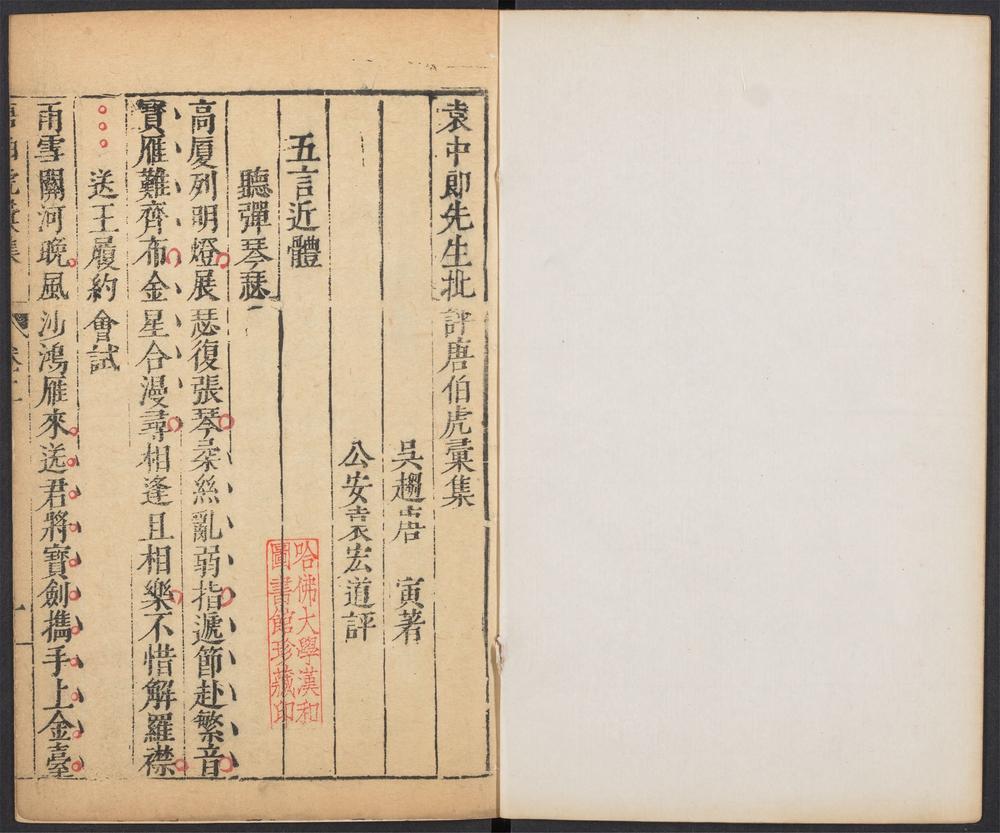 袁中郎先生批評唐伯虎彙集
吳趨唐　寅著
公安袁宏道評
五言近體
聽彈琴瑟
高厦列明燈展瑟復張琴朶絲亂弱指遞節赴繁音
寶雁難齊布金星合漫尋相逢且相樂不惜解羅襟
送王履約會試
雨雪關河晚風沙鴻雁來送君將寶劍擕手上金臺
哈佛大學漢和
圖書館珍藏印